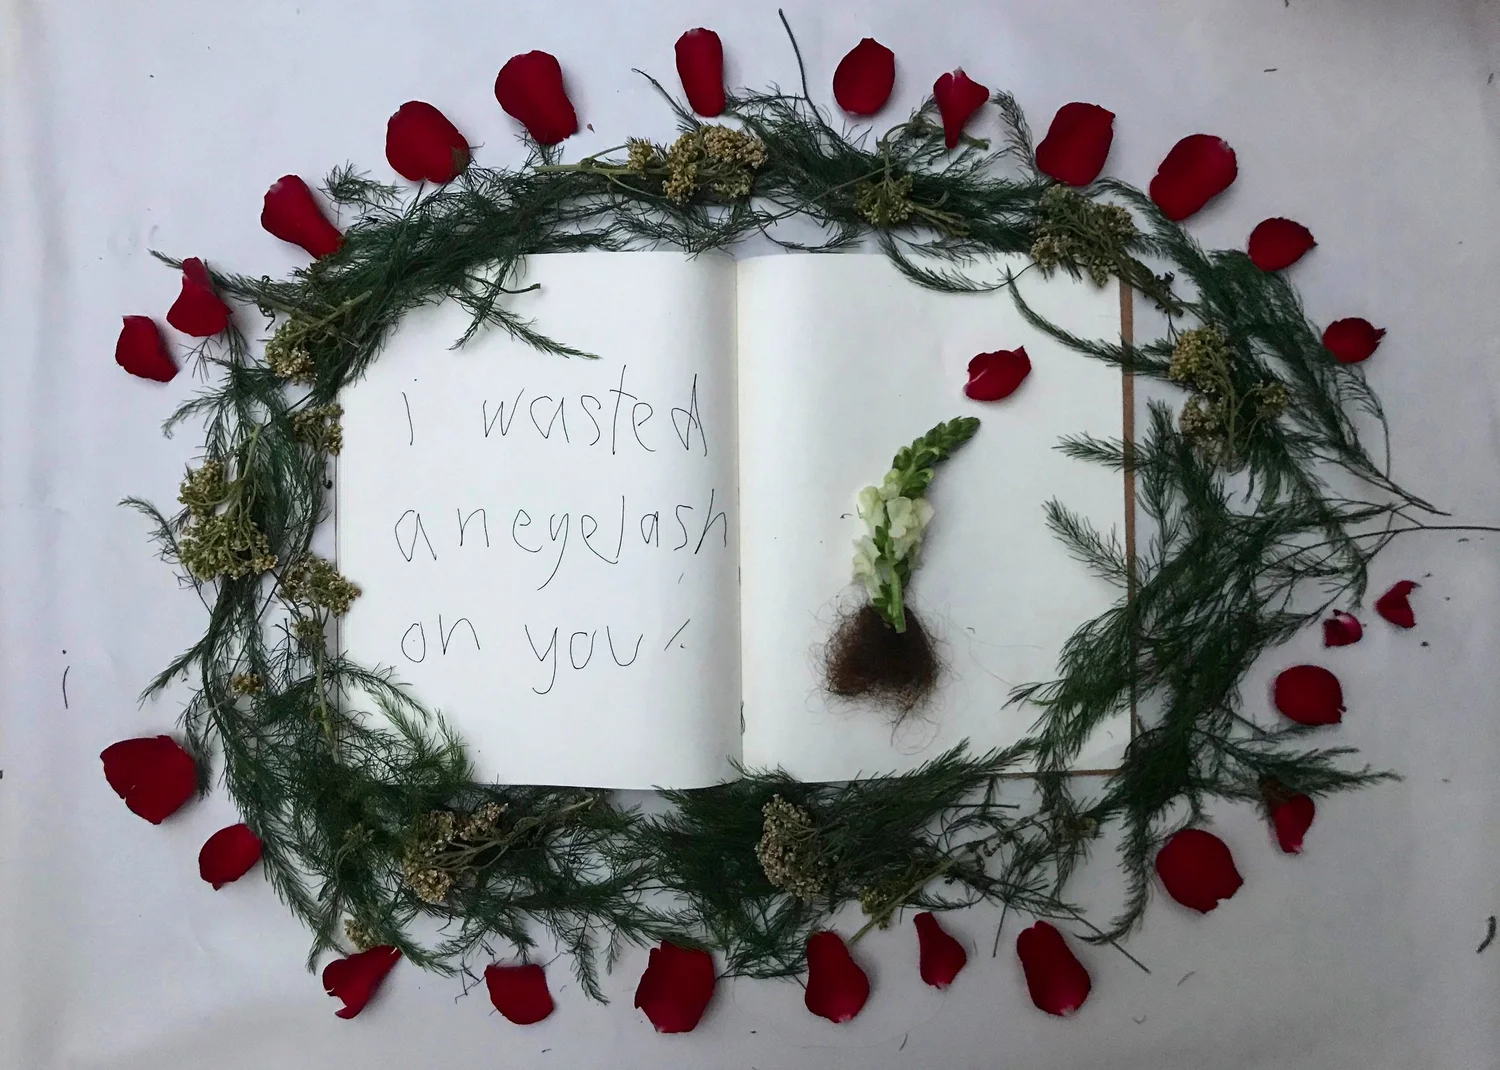 i wasted
an eyelash
on you :/